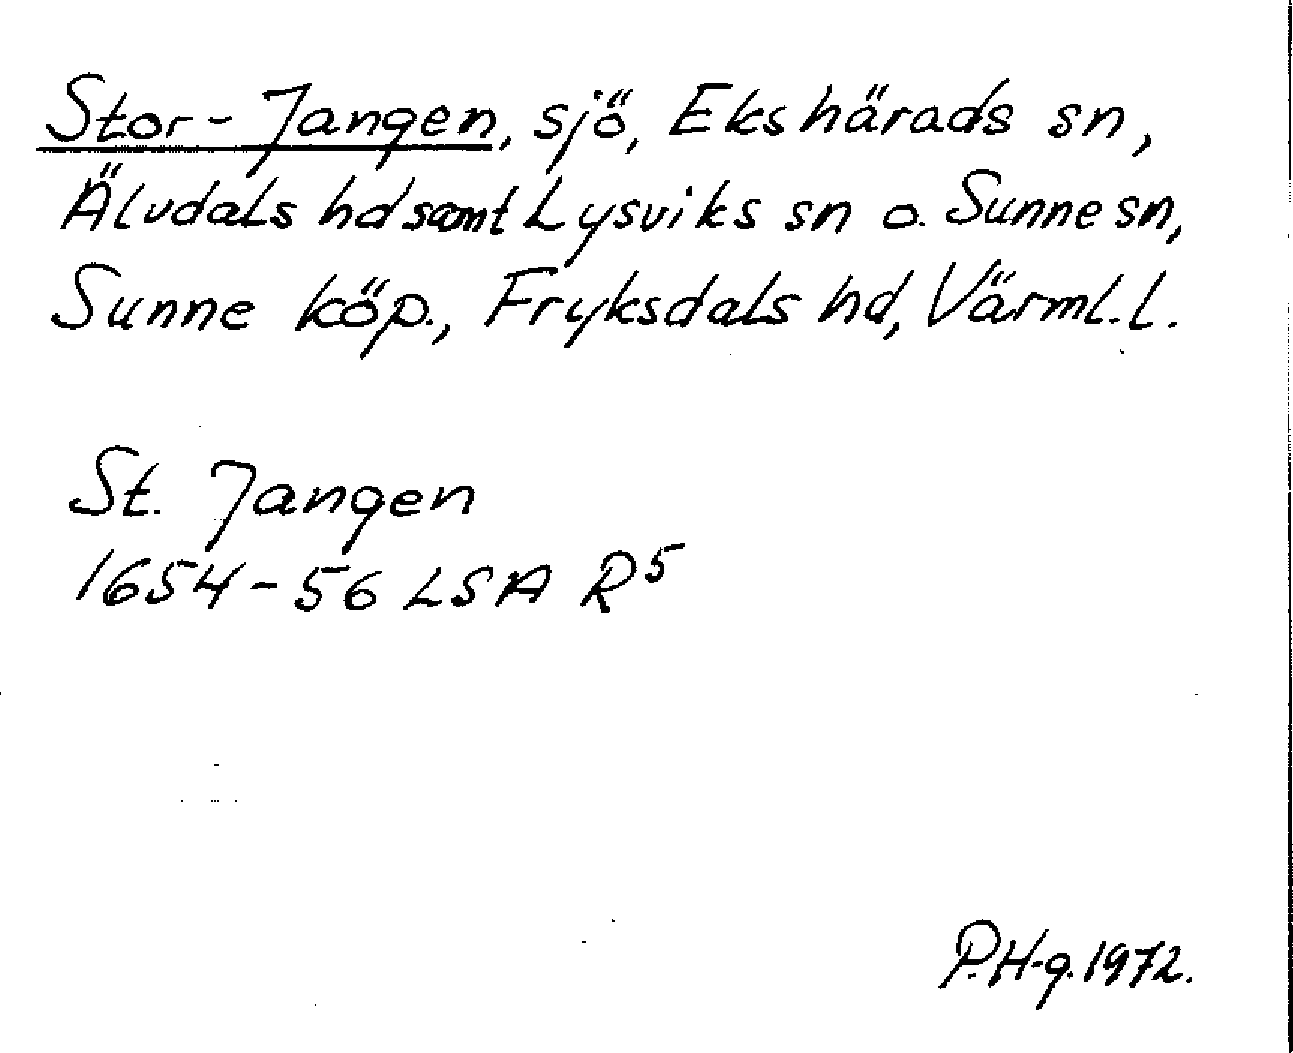 Stor-Jangen, sjö, Ekshärads sn,
Älvdals hd samt Lysviks sn o. Sunne sn,
Sunne köp., Fryksdals hd, Värml. l.
St. Jangen
1654-56 LSA R5
P.H-g. 1972.